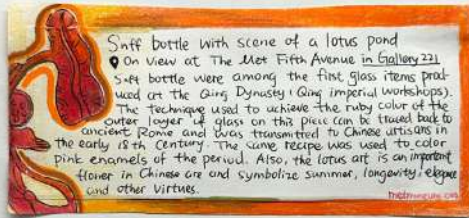 Snff bottle with scene of a lotus pond
On view at The Met Fifth Avenue in Gallery 221
Snft bottle were among the first glass items prod-
uced at the Qing Dynasty (Qing imperial workshops).
The technique used to achieve the ruby color of the
outer layer of glass on this piece can be traced back to
ancient Rome and was transmitted to Chinese artisans in
the early 18th Century. The same recipe was used to color
pink enamels of the period. Also, the lotus art is an important
floner in Chinese are and symbolize summer, longevity, elegance
and other virtues.